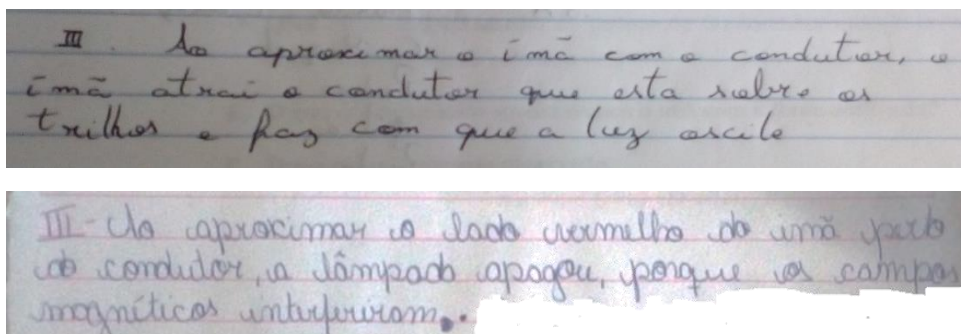 III. Ao aproximar o imã com o condutor, o
imã atrai o condutor que esta sobre os
trilhos e faz com que a luz oscile
III - Ao aproximar o lado vermelho do imã perto
do condutor, a lâmpada apagou, porque os campos
magnéticos interferiram.